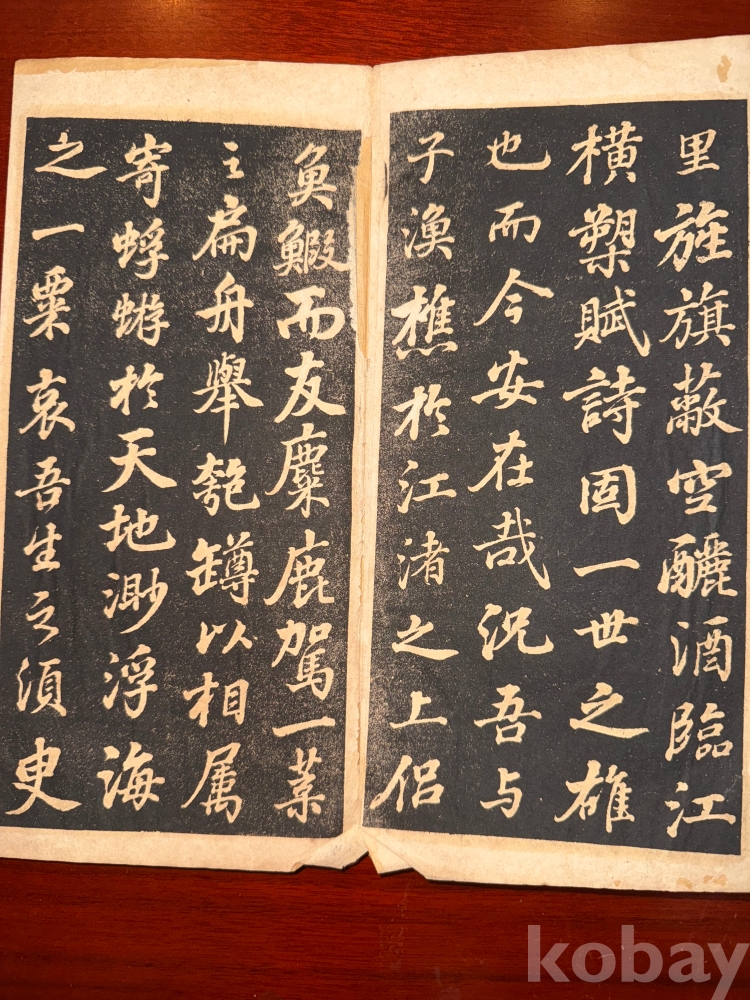 里旌旗蔽空釃酒臨江
橫槊賦詩固一世之雄
也而今安在哉況吾与
子漁樵於江渚之上侣
魚鰕而友麋鹿駕一葉
之扁舟舉匏罇以相属
寄蜉蝣於天地渺浮海
之一粟哀吾生之須臾
kobay